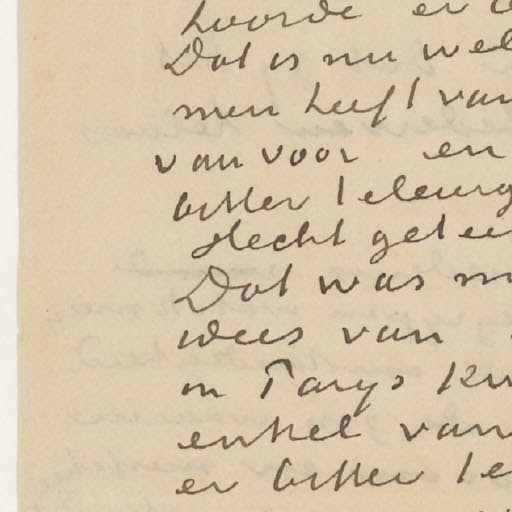 hoorde er
Dat is nu wel
men heeft van
van voor en
bitter teleurg
slecht gete
Dat was m
wees van
in Parys
enkel van
er bitter te